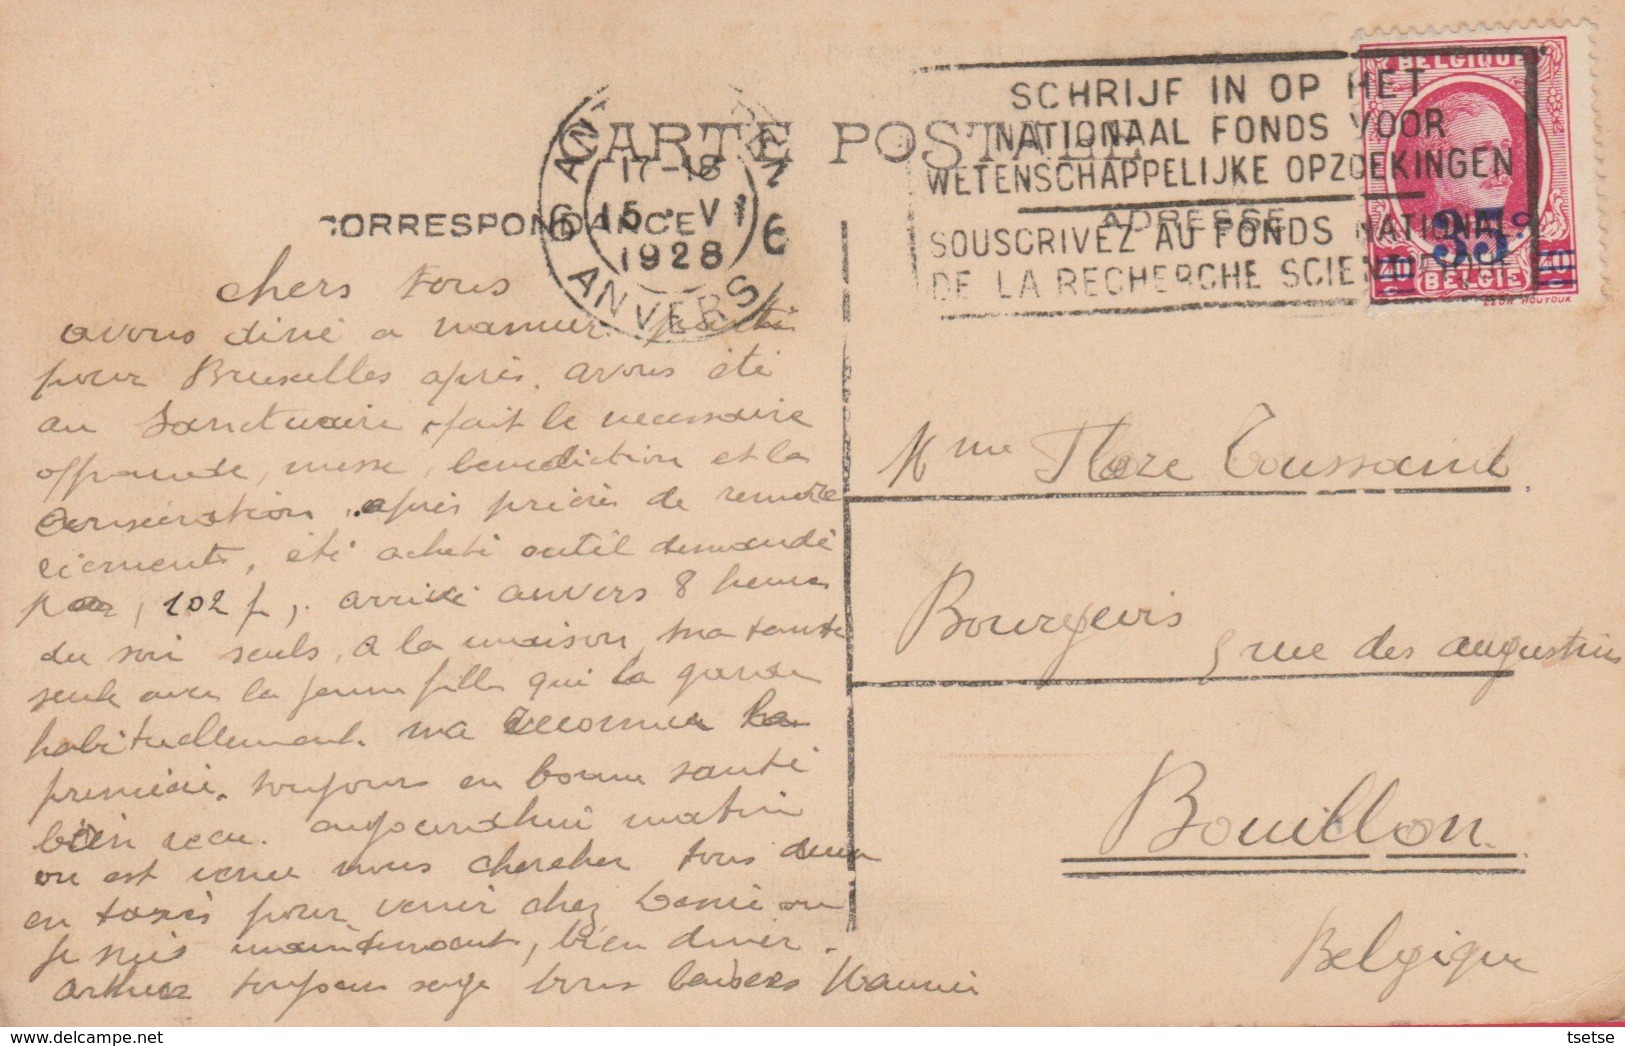 CARTE POSTALE
CORRESPONDANCE
ADRESSE
ANTWERPEN
17-18
15 · VI
1928
6 6
ANVERS
SCHRIJF IN OP HET
NATIONAAL FONDS VOOR
WETENSCHAPPELIJKE OPZOEKINGEN
SOUSCRIVEZ AU FONDS NATIONAL
DE LA RECHERCHE SCIENTIFIQUE
BELGIQUE
35c
BELGIË
chers tous
avons diné a namur partis
pour Bruxelles après. avons été
au Sanctuaire, fait le necessaire
offrande, messe, benediction et la
après prières de remer
ciements, été acheté outil demandé
par, 102 f, . arrivé anvers 8 heures
du soir seuls, a la maison, ma tante
seule avec la jeune fille qui la garde
habituellement. ma reconnu la
première. toujours en bonne santé
bien recu. aujourd'hui matin
on est venu nous chercher tous deux
en taxis pour venir chez on
je suis maintenant, bien diner.
toujours sage bons baisers
Mme Flore Toussaint
Bourgeois
5 rue des augustins
Bouillon
Belgique
tsetse